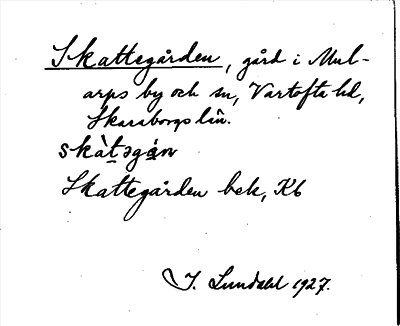 Skattegården, gård i Mul-
arps by och sn, Vartofta hd,
Skaraborgs län.
skàt̠əgá̠n
Skattegården bek, Kb
I. Lundahl 1927.